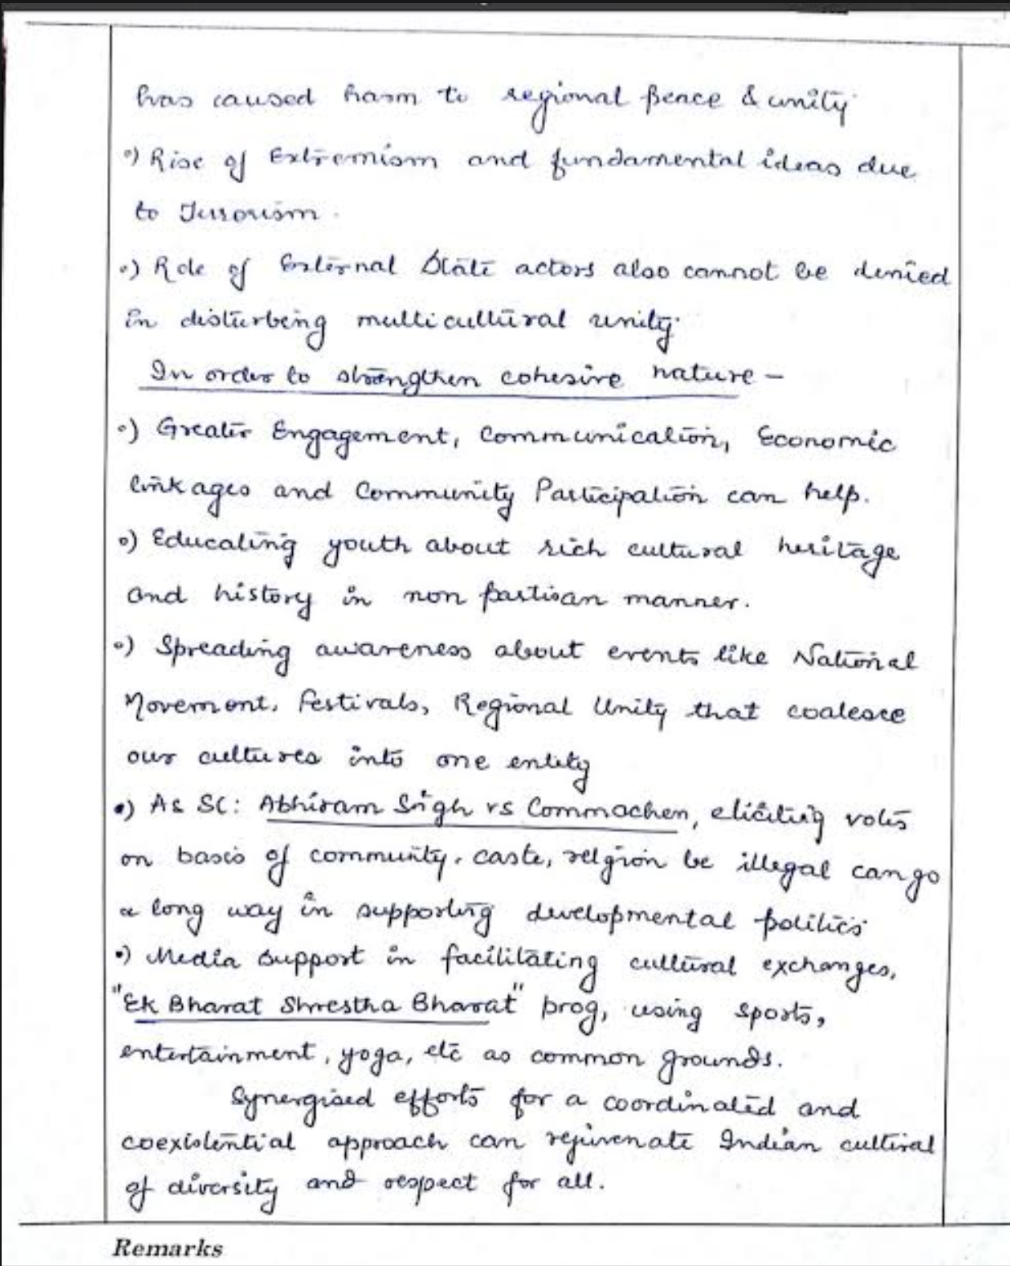 has caused harm to regional peace & unity
∘) Rise of Extremism and fundamental ideas due
to Terrorism.
∘) Role of External State actors also cannot be denied
in disturbing multicultural unity.
In order to strengthen cohesive nature –
∘) Greater Engagement, Communication, Economic
linkages and Community Participation can help.
∘) Educating youth about rich cultural heritage
and history in non partisan manner.
∘) Spreading awareness about events like National
Movement, Festivals, Regional Unity that coalesce
our cultures into one entity
∘) As SC: Abhiram Sigh vs Commachen, eliciting votes
on basis of community, caste, relgion be illegal can go
a long way in supporting developmental politics
∘) Media support in facilitating cultural exchanges,
"Ek Bharat Shrestha Bharat" prog, using sports,
entertainment, yoga, etc as common grounds.
Synergised efforts for a coordinated and
coexistential approach can rejuvenate Indian cultural
of diversity and respect for all.
Remarks